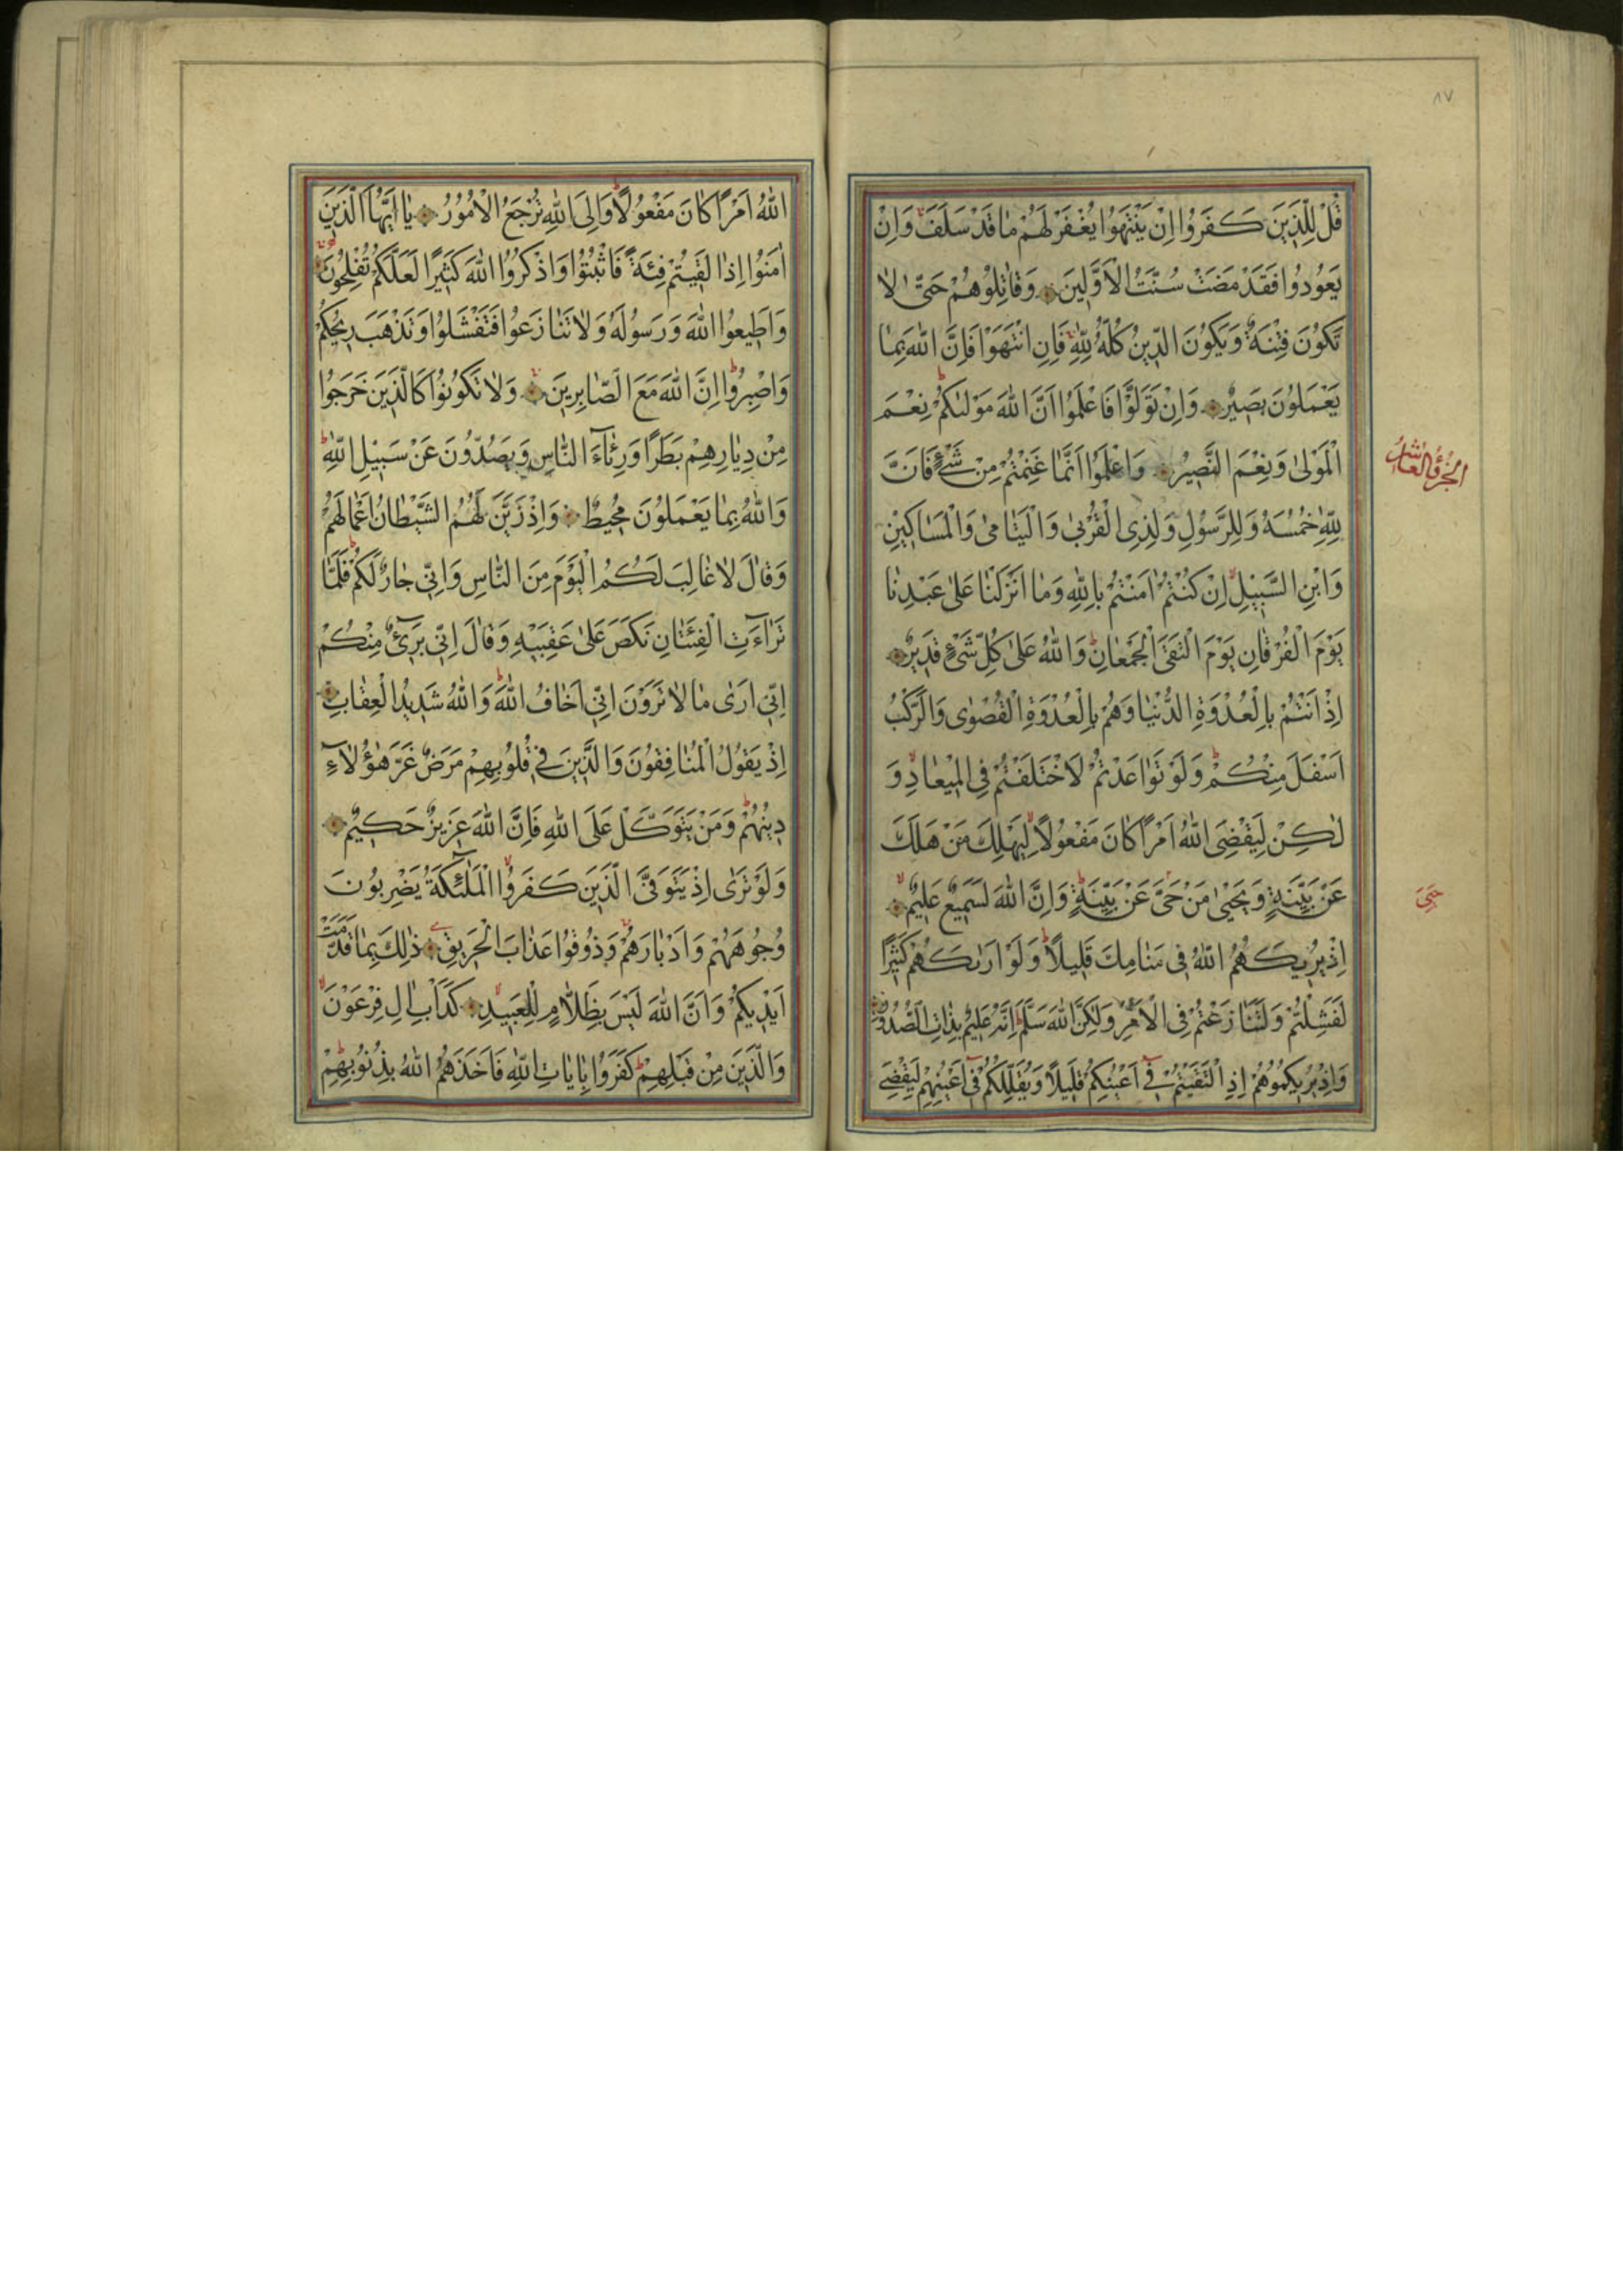 ٨٧
قُلْ لِلَّذِينَ كَفَرُوا اِنْ يَنْتَهُوا يُغْفَرْ لَهُمْ مٰا قَدْ سَلَفَ وَاِنْ
يَعُودُوا فَقَدْ مَضَتْ سُنَّتُ الْاَوَّلِينَ وَقٰاتِلُوهُمْ حَتّٰى لٰا
تَكُونَ فِتْنَةٌ وَيَكُونَ الدِّينُ كُلُّهُ لِلّٰهِ فَاِنِ انْتَهَوْا فَاِنَّ اللّٰهَ بِمٰا
يَعْمَلُونَ بَصِيرٌ وَاِنْ تَوَلَّوْا فَاعْلَمُوا اَنَّ اللّٰهَ مَوْلٰىكُمْ نِعْمَ
الْمَوْلىٰ وَنِعْمَ النَّصِيرُ وَاعْلَمُوا اَنَّمٰا غَنِمْتُمْ مِنْ شَيْءٍ فَاَنَّ
الجزؤ العاشر
لِلّٰهِ خُمُسَهُ وَلِلرَّسُولِ وَلِذِى الْقُرْبىٰ وَالْيَتٰامىٰ وَالْمَسٰاكِينِ
وَابْنِ السَّبِيلِ اِنْ كُنْتُمْ اٰمَنْتُمْ بِاللّٰهِ وَمٰا اَنْزَلْنٰا عَلىٰ عَبْدِنٰا
يَوْمَ الْفُرْقٰانِ يَوْمَ الْتَقَى الْجَمْعٰانِ وَاللّٰهُ عَلىٰ كُلِّ شَىْءٍ قَدِيرٌ
اِذْ اَنْتُمْ بِالْعُدْوَةِ الدُّنْيٰا وَهُمْ بِالْعُدْوَةِ الْقُصْوٰى وَالرَّكْبُ
اَسْفَلَ مِنْكُمْ وَلَوْ تَوٰاعَدْتُمْ لَاخْتَلَفْتُمْ فِى الْمِيعٰادِ وَ
لٰكِنْ لِيَقْضِىَ اللّٰهُ اَمْرًا كٰانَ مَفْعُولًا لِيَهْلِكَ مَنْ هَلَكَ
عَنْ بَيِّنَةٍ وَيَحْيىٰ مَنْ حَىَّ عَنْ بَيِّنَةٍ وَاِنَّ اللّٰهَ لَسَمِيعٌ عَلِيمٌ
حَيِىَ
اِذْ يُرِيكَهُمُ اللّٰهُ فِى مَنٰامِكَ قَلِيلًا وَلَوْ اَرٰىكَهُمْ كَثِيرًا
لَفَشِلْتُمْ وَلَتَنٰازَعْتُمْ فِى الْاَمْرِ وَلٰكِنَّ اللّٰهَ سَلَّمَ اِنَّهُ عَلِيمٌ بِذٰاتِ الصُّدُورِ
وَاِذْ يُرِيكُمُوهُمْ اِذِ الْتَقَيْتُمْ فِى اَعْيُنِكُمْ قَلِيلًا وَيُقَلِّلُكُمْ فِى اَعْيُنِهِمْ لِيَقْضِىَ
اللّٰهُ اَمْرًا كٰانَ مَفْعُولًا وَاِلَى اللّٰهِ تُرْجَعُ الْاُمُورُ يٰا اَيُّهَا الَّذِينَ
اٰمَنُوا اِذٰا لَقِيتُمْ فِئَةً فَاثْبُتُوا وَاذْكُرُوا اللّٰهَ كَثِيرًا لَعَلَّكُمْ تُفْلِحُونَ
وَاَطِيعُوا اللّٰهَ وَرَسُولَهُ وَلٰا تَنٰازَعُوا فَتَفْشَلُوا وَتَذْهَبَ رِيحُكُمْ
وَاصْبِرُوا اِنَّ اللّٰهَ مَعَ الصّٰابِرِينَ وَلٰا تَكُونُوا كَالَّذِينَ خَرَجُوا
مِنْ دِيٰارِهِمْ بَطَرًا وَرِئٰاءَ النّٰاسِ وَيَصُدُّونَ عَنْ سَبِيلِ اللّٰهِ
وَاللّٰهُ بِمٰا يَعْمَلُونَ مُحِيطٌ وَاِذْ زَيَّنَ لَهُمُ الشَّيْطٰانُ اَعْمٰالَهُمْ
وَقٰالَ لٰا غٰالِبَ لَكُمُ الْيَوْمَ مِنَ النّٰاسِ وَاِنِّى جٰارٌ لَكُمْ فَلَمّٰا
تَرٰاءَتِ الْفِئَتٰانِ نَكَصَ عَلىٰ عَقِبَيْهِ وَقٰالَ اِنِّى بَرِىءٌ مِنْكُمْ
اِنِّى اَرٰى مٰا لٰا تَرَوْنَ اِنِّى اَخٰافُ اللّٰهَ وَاللّٰهُ شَدِيدُ الْعِقٰابِ
اِذْ يَقُولُ الْمُنٰافِقُونَ وَالَّذِينَ فِى قُلُوبِهِمْ مَرَضٌ غَرَّ هٰؤُلٰاءِ
دِينُهُمْ وَمَنْ يَتَوَكَّلْ عَلَى اللّٰهِ فَاِنَّ اللّٰهَ عَزِيزٌ حَكِيمٌ
وَلَوْ تَرٰى اِذْ يَتَوَفَّى الَّذِينَ كَفَرُوا الْمَلٰئِكَةُ يَضْرِبُونَ
وُجُوهَهُمْ وَاَدْبٰارَهُمْ وَذُوقُوا عَذٰابَ الْحَرِيقِ ذٰلِكَ بِمٰا قَدَّمَتْ
اَيْدِيكُمْ وَاَنَّ اللّٰهَ لَيْسَ بِظَلّٰامٍ لِلْعَبِيدِ كَدَأْبِ اٰلِ فِرْعَوْنَ
وَالَّذِينَ مِنْ قَبْلِهِمْ كَفَرُوا بِاٰيٰاتِ اللّٰهِ فَاَخَذَهُمُ اللّٰهُ بِذُنُوبِهِمْ